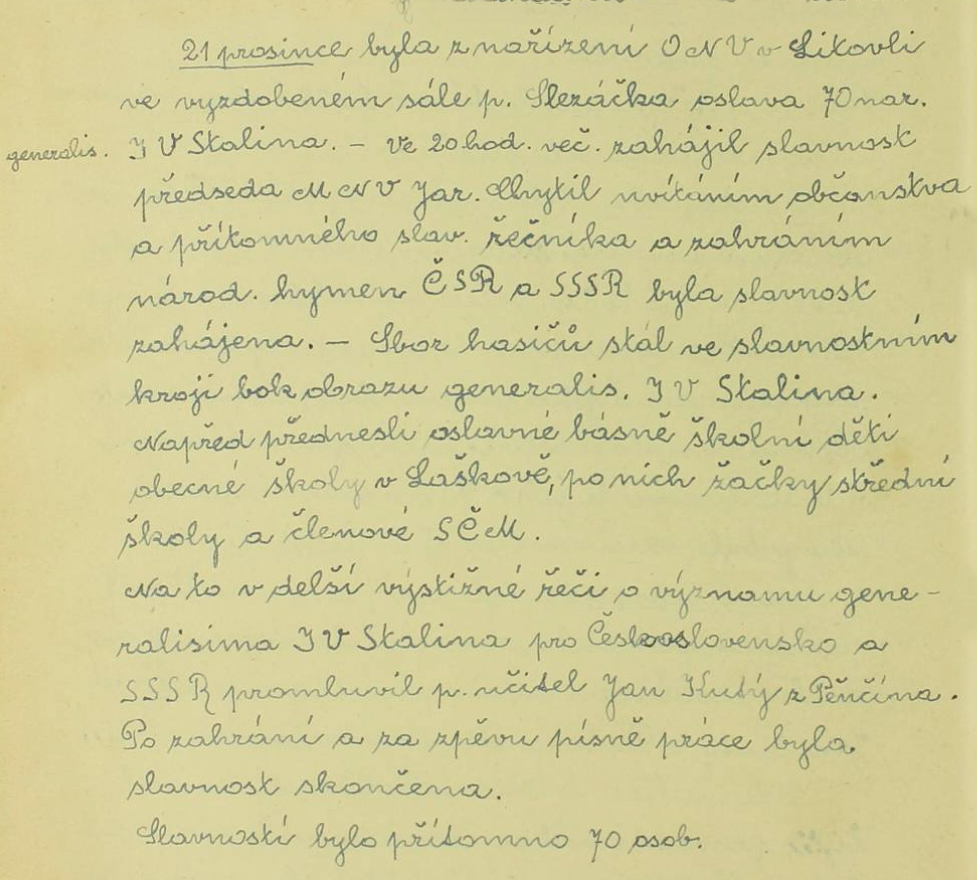 21 prosince byla z nařízení ONV v Litovli
ve vyzdobeném sále p. Slezáčka oslava 70 nar.
generalis. J V Stalina. – Ve 20 hod. več. zahájil slavnost
předseda MNV Jar. Chytil uvítáním občanstva
a přítomného slav. řečníka a zahráním
národ. hymen ČSR a SSSR byla slavnost
zahájena. – Sbor hasičů stál ve slavnostním
kroji bok obrazu generalis. J V Stalina.
Napřed přednesli oslavné básně školní děti
obecné školy v Laškově, po nich žačky střední
školy a členové SČM.
Na to v delší výstižné řeči o významu gene-
ralisima J V Stalina pro Československo a
SSSR promluvil p. učitel Jan Kutý z Pěnčína.
Po zahrání a za zpěvu písně práce byla
slavnost skončena.
Slavnosti bylo přítomno 70 osob.